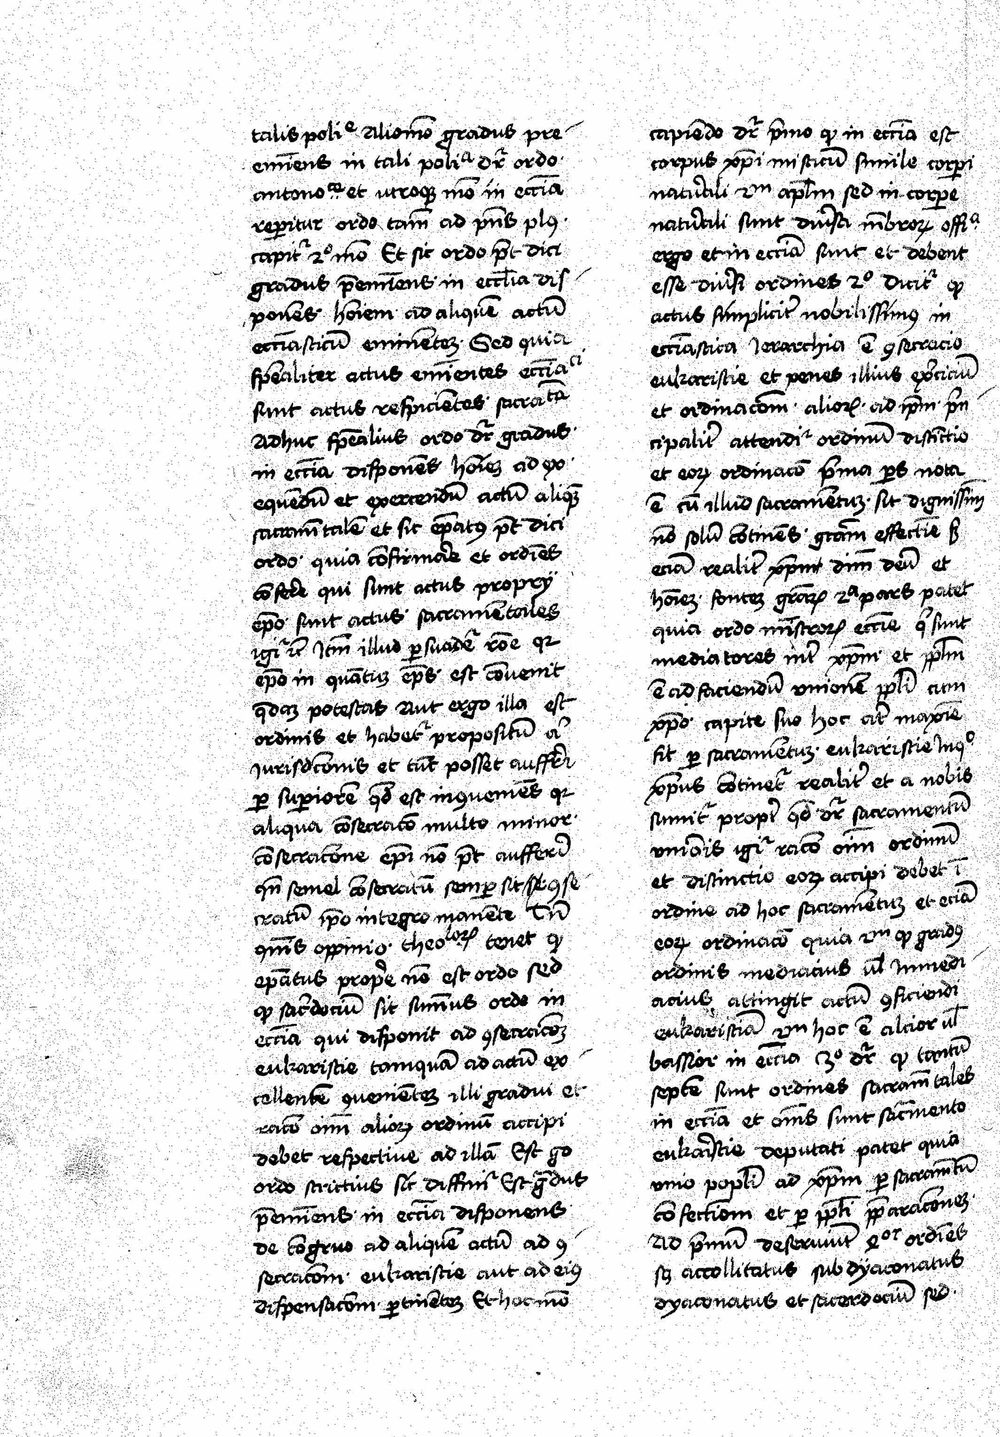 talis poliᵃ Aliomō gradus pre-
emīens in tali poliᵃ dr̄ ordo
antonoᶜᵉ et utroqꝫ mō in eccīa
reperitur ordo tam̄ ad pn̄s plꝰ
capitʳ 2º mō Et sic ordo pt̄ dici
gradus p̄emīens in eccl̄ia dis-
ponēs hoīem ad aliquē actū
eccīasticū eminētē Sed quia
sp̄ealiter actus emīentes eccīaᶜⁱ
sunt actus respiciētes sacraᵗᵃ
Adhuc sp̄ealius ordo dr̄ gradus
in eccīa disponēs hoīeꝫ ad ex-
equēdū et exercendū actū aliqꝫ
sacram̄talē et sic ep̄atꝰ pt̄ dici
ordo quia cōfirmare et ordīes
cōferre qui sunt actus propry
ep̄o sunt actus sacramētales
igiʳ ꝛc̄ Itm̄ illud ꝑsuadeʳ rōe qꝛ
ep̄o in quātuꝫ ep̄s est cōvenit
q̄daꝫ potestas Aut ergo illa est
ordinis et habetʳ propositū aᶦ
Iurisdc̄onis et tūc posset auffe͛ri
ꝑ superiorē qd̄ est incōueniēs qꝛ
aliqua cōsecracō multo minor
cōsecracōne ep̄i nō pt̄ aufferri
qn̄ semel cōsecratū semꝑ sit ꝯse-
cratū ip̄o integro manēte Tn̄
qm̄is oppinio theoloꝝ tenet ꝙ
epātus propͤe nō est ordo sed
ꝙ sacͤdociū sit sum̄us ordo in
eccīa qui disponit ad ꝯsecracōꝫ
eukaristie tamquā ad actū ex-
cellentē ꝯueniēteꝫ illi gradui et
racō oīm alioꝝ ordinū accipi
debet respective ad illā Est go
ordo strictius sic diffiniʳ Est gͣdus
p̄emīens in eccīa disponens
de cōgruo ad aliquē actū ad ꝯ-
secracōm eukaristie aut ad eiꝰ
dispensacōm ꝑtinēteꝫ Et hoc mō
capiēdo dr̄ pͥmo ꝙ in eccīa est
corpus xp̄i misticū simile corpi
naturali un̄ apl̄m sed in corpe
naturali sunt diuersa mēbroꝝ offiᵃ
ergo et in eccīa sunt et debent
esse diuersi ordines 2º dicitʳ ꝙ
actus simplicit͛ nobilissimꝰ in
eccīastica Ierarchia ē ꝯsecracio
eukaristie et penes illius exͤciciū
et ordinacōm alioꝝ ad ip̄m pͥn-
cipalit͛ attendiʳ ordinū distīctio
et eoꝝ ordinacō pͥma ꝑs nota
ē cū illud sacramētuꝫ sit dignissim̄
nō solū cōtinēs gram̄ effectīe sꝫ
eciā realit͛ xp̄m dn̄m deū et
hoīeꝫ fontē graꝝ 2ª pars patet
quia ordo mīstroꝝ eccīe qͥ sunt
mediatores int͛ xp̄m et ppl̄m
ē ad faciendū unionē ppl̄i cum
xp̄o capite suo hoc aūt maxīe
fit ꝑ sacramētuꝫ eukaristie In qº
xp̄us cōtinetʳ realit͛ et a nobis
sumitʳ propt͛ qd̄ dr̄ sacramentū
unionis igiʳ racō oīm ordinū
et distinctio eoꝝ accipi debet ī
ordine ad hoc sacramētuꝫ et eciā
eoꝝ ordinacō quia un̄ ꝙ gradꝰ
ordinis mediacius ul̄ Inmedi-
acius attingit actū ꝯficiendi
eukaristiā un̄ hoc ē alcior ul̄
bassior in eccīa 3º dr̄ ꝙ tantū
septē sunt ordines sacram̄tales
in eccīa et om̄s sunt sacͣmento
eukaristie deputati patet quia
unio popl̄i ad xp̄m ꝑ sacramētū
cōfectiom et ꝑ ppl̄i pͣparacōneꝫ
Ad pͥmū deseruiūt qᵒʳ ordīes
sꝫ accollitatus subdyaconatus
dyaconatus et sacerdociū sed